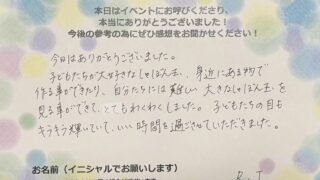 本日はイベントにお呼びくださり、
本当にありがとうございました！
今後の参考の為にぜひ感想をお聞かせください！
今日はありがとうございました。
子どもたちが大好きなしゃぼん玉、身近にある物で
作る事ができたり、自分たちには難しい大きなしゃぼん玉を
見る事ができて、とてもわくわくしました。子どもたちの目も
キラキラ輝いていて、いい時間を過ごさせていただきました。
お名前（イニシャルでお願いします）
R.I